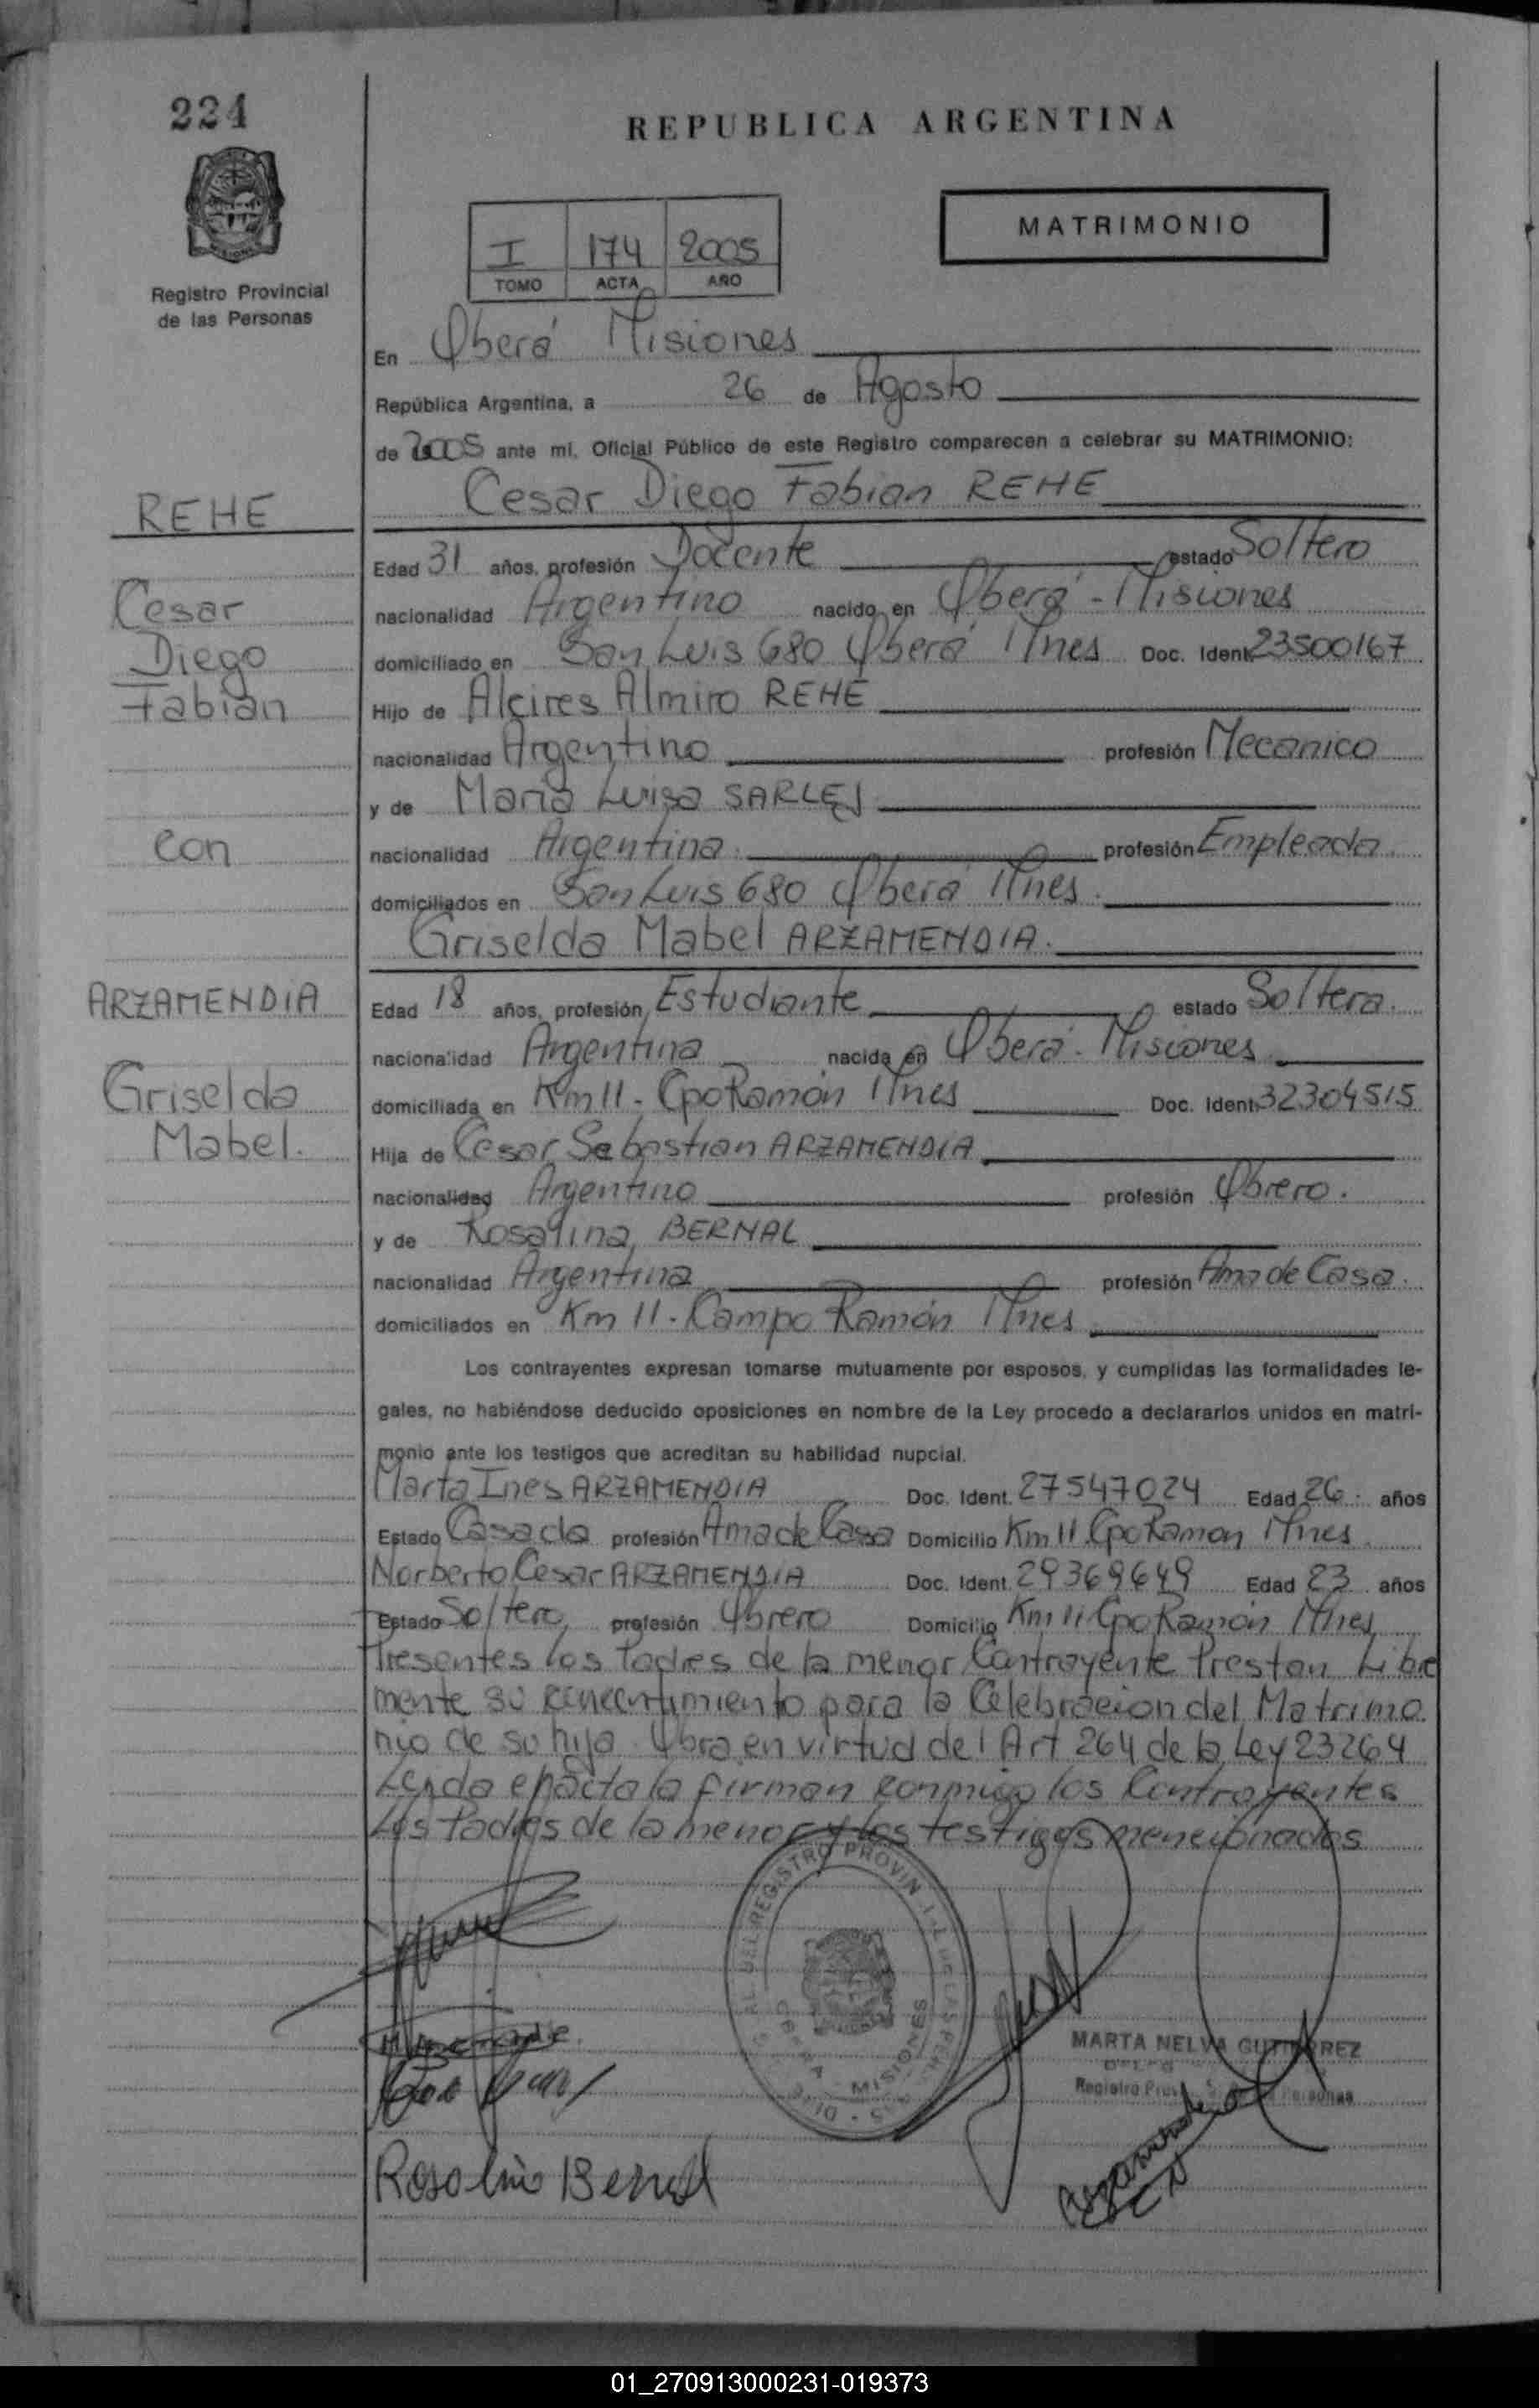 224
REPUBLICA ARGENTINA
MATRIMONIO
I 174 2005
TOMO ACTA AÑO
Registro Provincial
de las Personas
En Oberá Misiones
República Argentina, a 26 de Agosto
de 2005 ante mí, Oficial Público de este Registro comparecen a celebrar su MATRIMONIO:
Cesar Diego Fabian REHE
REHE
Edad 31 años, profesión Docente estado Soltero
Cesar
nacionalidad Argentino nacido en Oberá - Misiones
Diego
domiciliado en San Luis 680 Oberá Mnes Doc. Ident 23500167
Fabian
Hijo de Alcires Almiro REHE
nacionalidad Argentino profesión Mecanico
y de Maria Luisa SARLEJ
con
nacionalidad Argentina profesión Empleada
domiciliados en San Luis 680 Oberá Mnes.
Griselda Mabel ARZAMENDIA.
ARZAMENDIA
Edad 18 años, profesión Estudiante estado Soltera.
nacionalidad Argentina nacida en Oberá - Misiones
Griselda
domiciliada en Km 11 - Cpo Ramón Mnes Doc. Ident 32304515
Mabel.
Hija de Cesar Sebastian ARZAMENDIA
nacionalidad Argentino profesión Obrero.
y de Rosalina BERNAL
nacionalidad Argentina profesión Ama de Casa.
domiciliados en Km 11 - Campo Ramón Mnes
Los contrayentes expresan tomarse mutuamente por esposos, y cumplidas las formalidades le-
gales, no habiéndose deducido oposiciones en nombre de la Ley procedo a declararlos unidos en matri-
monio ante los testigos que acreditan su habilidad nupcial.
Marta Ines ARZAMENDIA Doc. Ident. 27547024 Edad 26 años
Estado Casada profesión Ama de Casa Domicilio Km 11 Cpo Ramon Mnes
Norberto Cesar ARZAMENDIA Doc. Ident. 29369649 Edad 23 años
Estado Soltero, profesión Obrero Domicilio Km 11 Cpo Ramón Mnes
Presentes los Padres de la menor Contrayente Prestan Libre
mente su concentimiento para la Celebracion del Matrimo
nio de su hija. Obra en virtud del Art 264 de la Ley 23264
Leida el acta la firman conmigo los Contrayentes
Los Padres de la menor y los testigos mencionados
MARTA NELVA GUTIERREZ
Rosalina Bernal
01_270913000231-019373